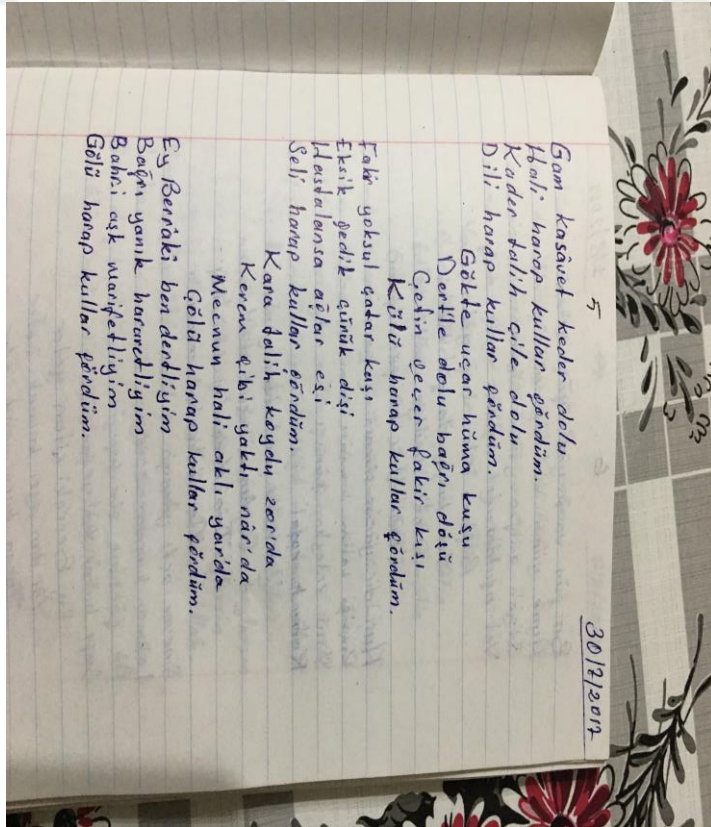 30/7/2017
5
Gam kasâvet keder dolu
Hali harap kullar gördüm.
Kader talih çile dolu
Dili harap kullar gördüm.
Gökte uçar hüma kuşu
Dertle dolu bağrı döşü
Çetin geçer fakir kışı
Külü harap kullar gördüm.
Fakir yoksul çatar kaşı
Eksik gedik çürük dişi
Hastalansa ağlar eşi
Seli harap kullar gördüm.
Kara talih koydu zor'da
Kerem gibi yaktı nâr'da
Mecnun hali aklı yar'da
Çölü harap kullar gördüm.
Ey Berrâki ben dertliyim
Bağrı yanık hararetliyim
Bahri aşk marifetliyim
Gölü harap kullar gördüm.